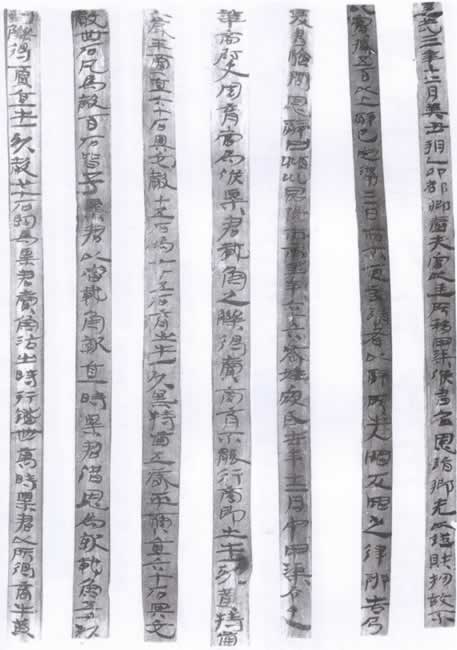 建武三年十二月癸丑朔乙卯都鄉嗇夫宮以廷所移甲渠候書召恩詣鄉先以證財物故不
以實臧五百以上辭已定滿三日而不更言請者以辭所出入罪反罪之律辨告乃
爰書驗問恩辭曰潁川昆陽市南里年六十六歲姓寇氏去年十二月中甲渠令史
華商尉史周育當為候粟君載魚之觻得賣商育不能行商即出牛一頭黃特齒
八歲平賈直六十石與它穀十五石為穀七十五石育出牛一頭黑特齒五歲平賈直六十石與它
穀卌石凡為穀百石皆予粟君以當載魚就直時粟君借恩為就載魚五千頭
到觻得賈直牛一頭穀廿七石約為粟君賣魚沽出時行錢卌萬時粟君以所得商牛黃